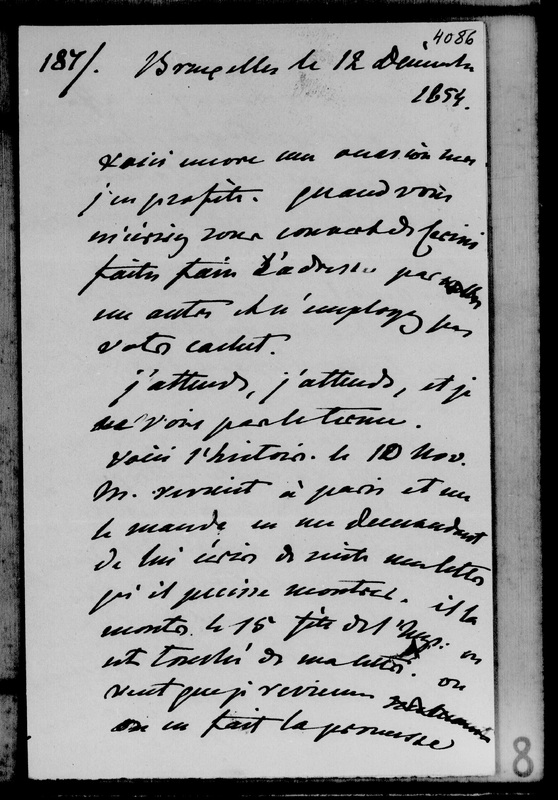 4086
187/. Bruxelles le 12 décembre
1854.
voici encore une occasion
j'en profite. quand vous
m'écrirez sous couvert de
faites faire l'adresse par
un autre et n'employez pas
votre cachet.
j'attends, j'attends, et je
ne vois pas le terme.
voici l'histoire. le 10 Nov.
M. revient à paris et me
le mande en me demandant
de lui écrire de suite une lettre
qu'il puisse montrer. il la
montre le 15 fête de l'Imp. on
est touché de ma lettre. on
veut que je revienne
on en fait la promesse
8